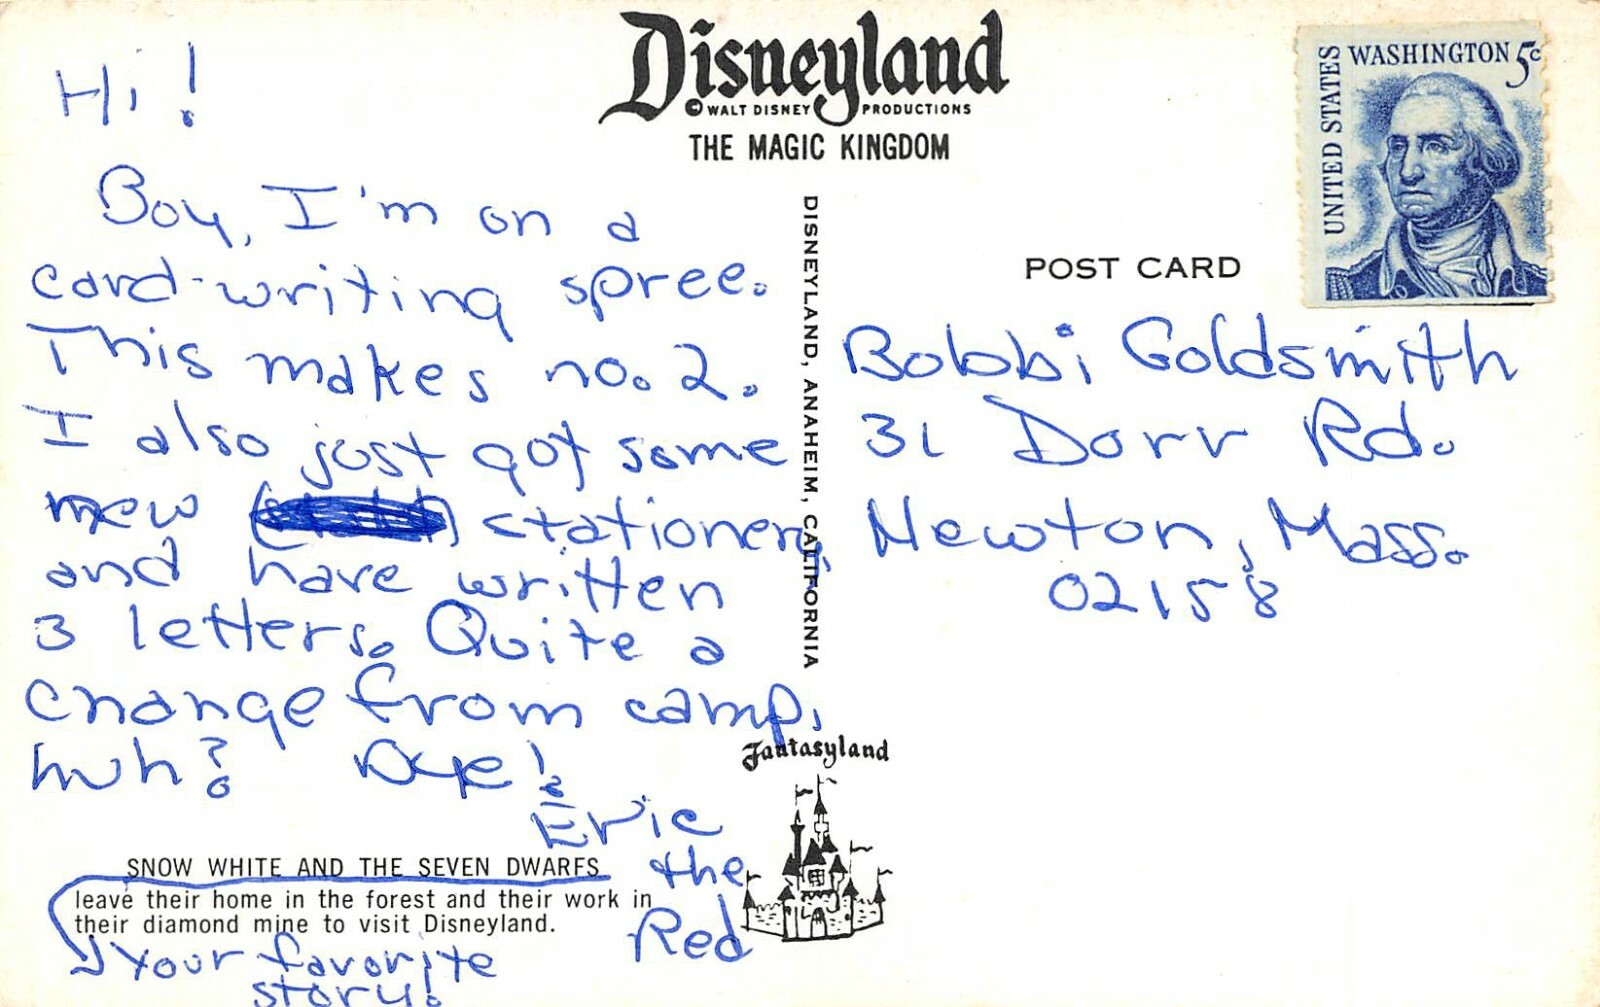 Hi!
Boy, I'm on a
card-writing spree.
This makes no. 2.
I also just got some
new stationery
and have written
3 letters. Quite a
change from camp,
huh? Bye!
Eric
the
Red
SNOW WHITE AND THE SEVEN DWARFS
leave their home in the forest and their work in
their diamond mine to visit Disneyland.
Your favorite
story!
Disneyland
© WALT DISNEY PRODUCTIONS
THE MAGIC KINGDOM
DISNEYLAND, ANAHEIM, CALIFORNIA
Fantasyland
UNITED STATES
WASHINGTON 5c
POST CARD
Bobbi Goldsmith
31 Dorr Rd.
Newton, Mass.
02158